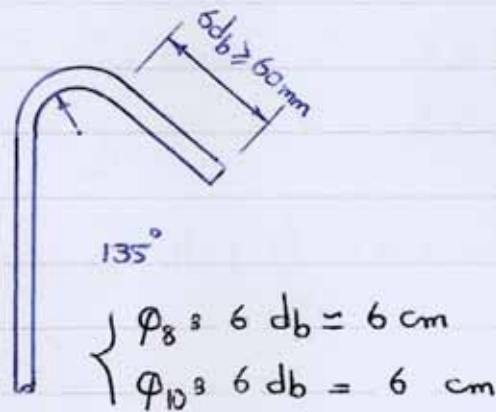 6db ≥ 60mm
135°
φ8 : 6 db ≃ 6 cm
φ10 : 6 db = 6 cm